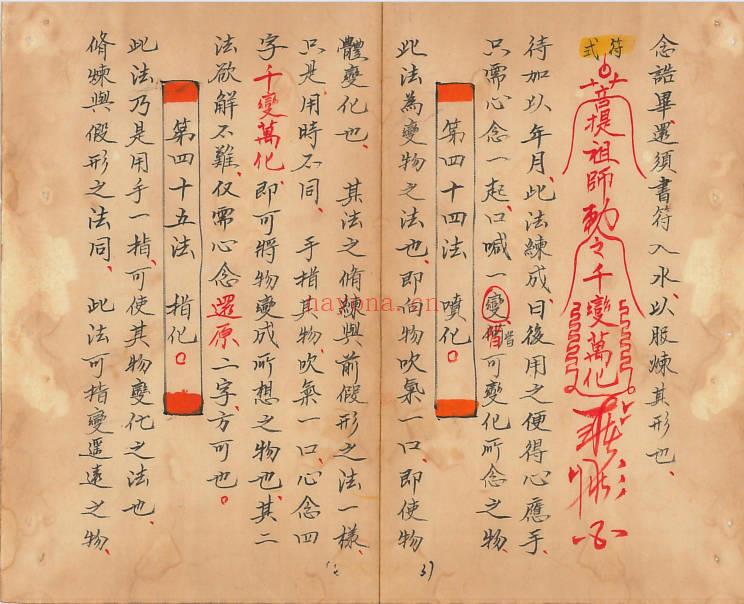 念誥畢還須書符入水、以服煉其形也、
符式
菩提祖師勅令千變萬化
待加以年月、此法練成、日後用之便得心應手、
只需心念一起、口喊一變、皆可變化所念之物、
第四十四法 噴化。
此法為變物之法也、即向物吹氣一口、即使物
體變化也、其法之脩練與前假形之法一樣、
只是用時不同、手指其物、吹氣一口、心念四
字千變萬化、即可將物變成所想之物也、其二
法欲解不難、仅需心念還原二字、方可也。
第四十五法 指化。
此法乃是用手一指、可使其物變化之法也、
脩煉與假形之法同、此法可指變遥遠之物、
nayona.cn